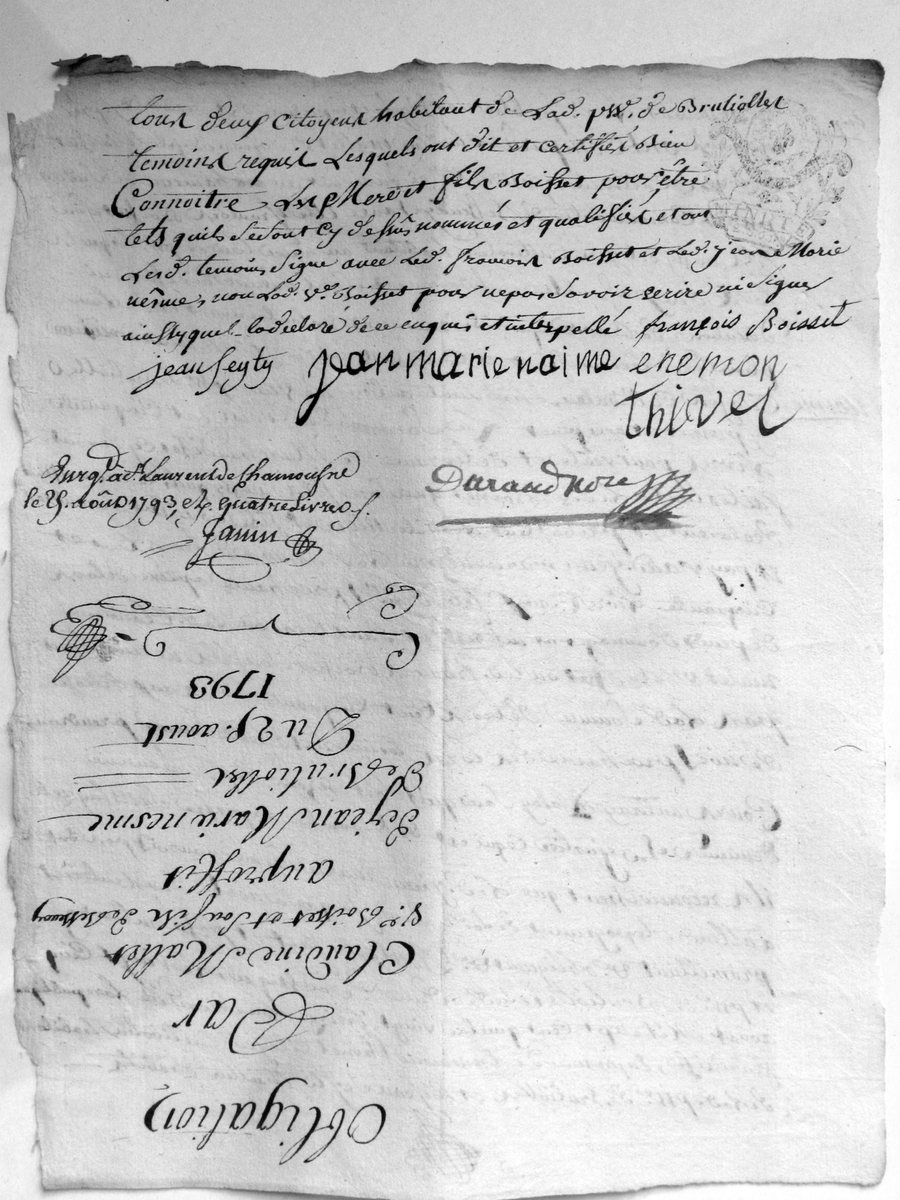 tous deux Citoyens habitant de Lad. psse. de Bruliolles
temoins requis Lesquels ont dit et certifiés Bien
Connoitre Les Mere et fils Boisset pour être
tels quils se sont Cy dessus nommés et qualifiés, et ont
Lesd. temoins Signé avec Led. francois Boisset et Led. jean Marie
nesme, non Lad. ve. Boisset pour ne pas Savoir ecrire ni Signer
ainsy quel la declaré de ce enquis et interpellé françois Boisset
jean Seyty jean marie naime enemon
thivel
Enregt. à St. Laurent de Chamousset
le 25. Août 1793, et. quatre Livres s.
Janin
Durand Nore
Obligation
Par
Claudine Mallet
Ve. Boisset et Son fils de
au proffit
de jean Marie nesme
de Brulliolles
Du 25. aoust
1793